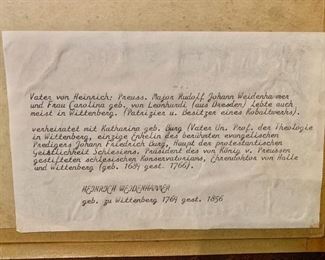 Vater von Heinrich: Preuss. Major Rudolf Johann Weidenhammer
und Frau Carolina geb. von Leonhardi (aus Dresden) Lebte auch
meist in Wittenberg. (Patrizier u. Besitzer eines Kobaltwerks).
verheiratet mit Katharina geb. Burg (Vater Un. Prof. der Theologie
in Wittenberg, einzige Enkelin des berühmten evangelischen
Predigers Johann Friedrich Burg, Haupt der protestantischen
Geistlichkeit Schlesiens. Präsident des von König v. Preussen
gestifteten schlesischen Konservatoriums, Ehrendoktor von Halle
und Wittenberg (geb. 1689 gest. 1766).
HEINRICH WEIDENHAMMER
geb. zu Wittenberg 1764 gest. 1836